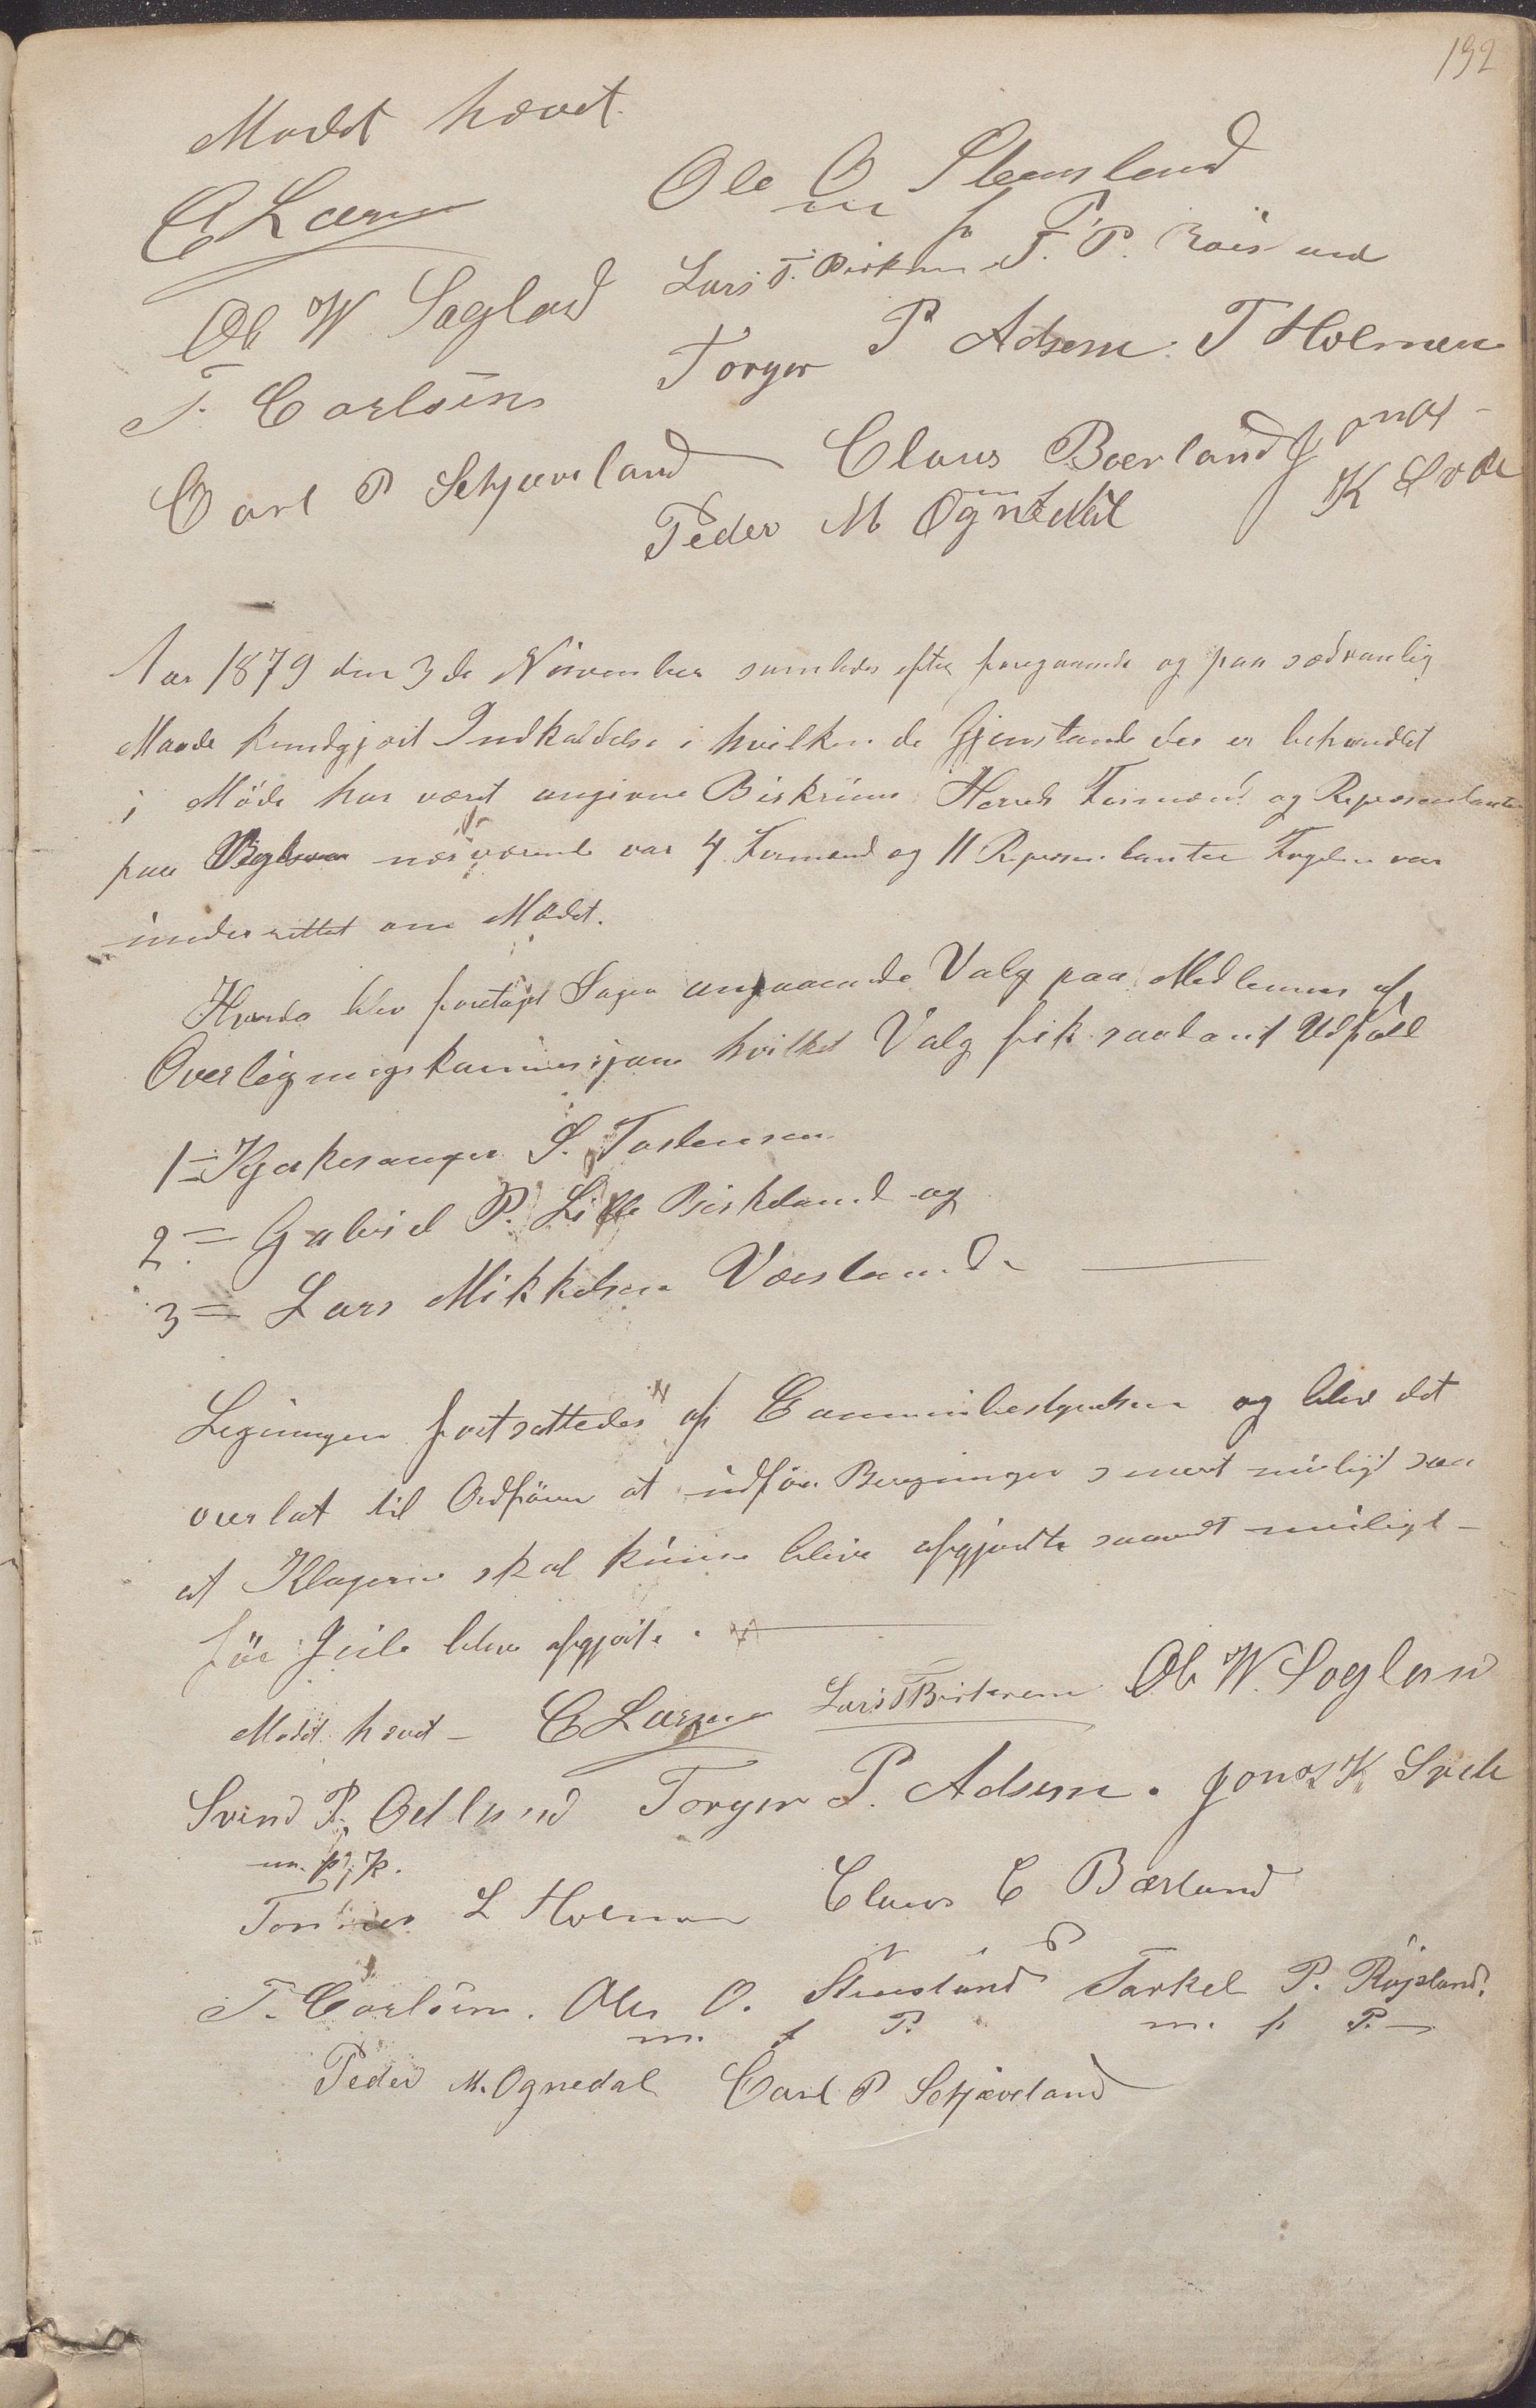 192
Mødet hævet.
Ole O Steensland
Ole W Sagland Lars T. Birkrem T. P. Röisland
T. Carlsen Torger P Adsem. T Holmen
Carl P Schjæveland Claus Bærland Jonas
K Svele
Peder M Ognedal
Aar 1879 den 3de November samledes efter foregaaende og paa sædvanlig
Maade kundgjort Indkaldelse i hvilken de Gjenstande der er behandlet
i Møde har været angivne Birkrems Herreds Formænd og Repræsentanter
paa nærværende var 4 Formænd og 11 Repræsentanter Fogden var
underrettet om Mødet.
Hvorda blev foretaget Sagen angaaende Valg paa Medlemmer af
Overligningskommissjonen hvilket Valg fik saadant Udfald
1= Kjerkesanger S. Tostensen
2= Gabriel P. Lille Birkeland og
3= Lars Mikkelsen Værland
Ligningen fortsattedes af Communebestyrelsen og blev det
overlat til Ordfører at udføre Beregninger snart muligt saa
at Klagerne skal kunne blive afgjordte saavidt muligt
før Jule blev afgjort.
Mødet hævet - Lars T Birkrem Ole W. Sagland
Svend P. Odland Torger P. Adsem. Jonas K Svele
m. p. P.
L Holmen Claus C Bærland
T. Carlsen. Ole O. Steensland Torkel P. Röjsland.
m. f P. m. f. P.
Peder M. Ognedal Carl P Schjæveland